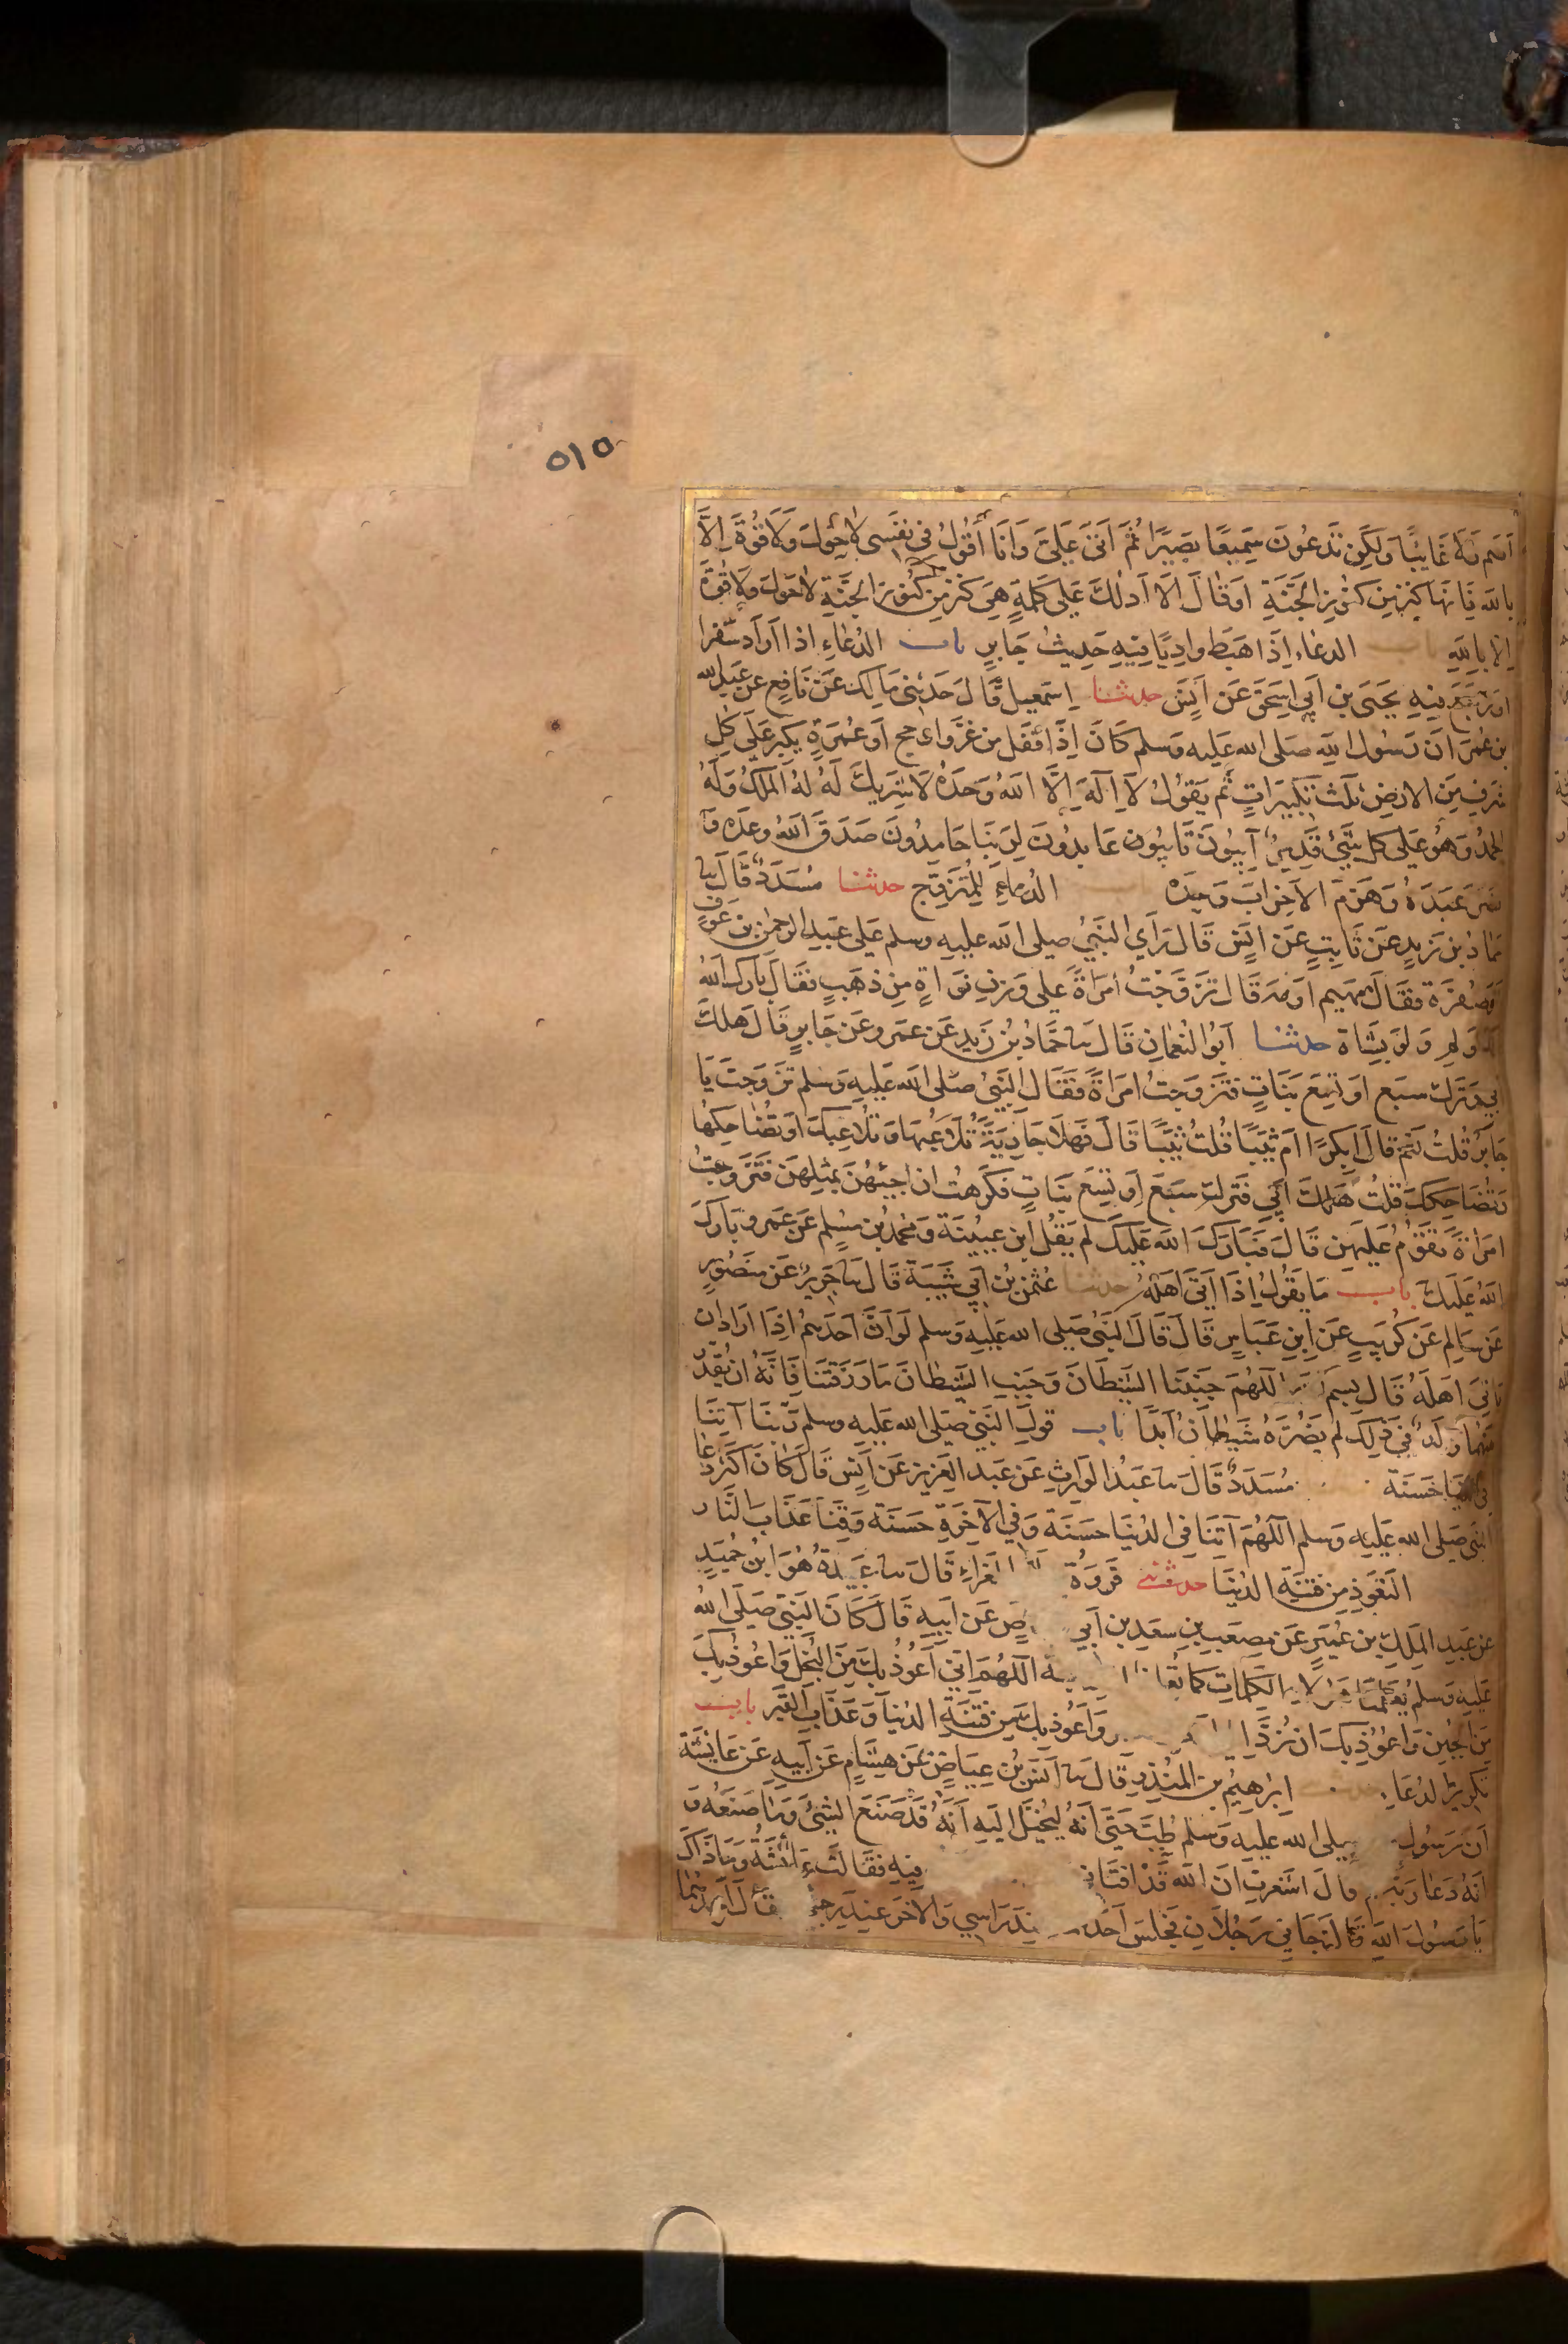 ٥١٥
اصم ولا غائبا ولكن تدعون سميعا بصيرا ثم اتى علي وانا أقول في نفسي لا حول ولا قوة الا
بالله فانها كنز من كنوز الجنة او قال الا ادلك على كلمة هي كنز من كنوز الجنة لا حول ولا قوة
الا بالله باب الدعاء اذا هبط واديا فيه حديث جابر باب الدعاء اذا اراد سفرا
او رجع فيه يحيى بن ابي اسحق عن انس حدثنا اسمعيل قال حدثني مالك عن نافع عن عبد الله
بن عمر ان رسول الله صلى الله عليه وسلم كان اذا قفل من غزو او حج او عمرة يكبر على كل
شرف من الارض ثلث تكبيرات ثم يقول لا اله الا الله وحده لا شريك له له الملك وله
الحمد وهو على كل شيئ قدير آيبون تايبون عابدون لربنا حامدون صدق الله وعده و
نصر عبده وهزم الاحزاب وحده الدعاء للمتزوج حدثنا مسدد قال ثنا
حماد بن زيد عن ثابت عن انس قال رأي النبي صلى الله عليه وسلم على عبد الرحمن بن عوف
اثر صفرة فقال مهيم او مه قال تزوجت امراة على وزن نواة من ذهب فقال بارك الله
لك اولم ولو بشاة حدثنا ابو النعمان قال ثنا حماد بن زيد عن عمرو عن جابر قال هلك
ابي وترك سبع او تسع بنات فتزوجت امراة فقال النبي صلى الله عليه وسلم تزوجت يا
جابر قلت نعم قال ابكرا ام ثيبا قلت ثيبا قال فهلا جارية تلاعبها وتلاعبك او تضاحكها
وتضاحكك قلت هلك ابي فترك سبع او تسع بنات فكرهت ان اجيئهن بمثلهن فتزوجت
امراة تقوم عليهن قال فبارك الله عليك لم يقل ابن عيينة ومحمد بن مسلم عن عمرو بارك
الله عليك باب ما يقول اذا اتى اهله حدثنا عثمن بن ابي شيبة قال ثنا جرير عن منصور
عن سالم عن كريب عن ابن عباس قال قال النبي صلى الله عليه وسلم لو ان احدهم اذا اراد ان
ياتي اهله قال بسم الله اللهم جنبنا الشيطان وجنب الشيطان ما رزقتنا فانه ان يقدر
بينهما ولد في ذلك لم يضره شيطان ابدا باب قول النبي صلى الله عليه وسلم ربنا آتنا
في الدنيا حسنة مسدد قال ثنا عبد الوارث عن عبد العزيز عن انس قال كان اكثر دعا
النبي صلى الله عليه وسلم اللهم آتنا في الدنيا حسنة وفي الآخرة حسنة وقنا عذاب النار
التعوذ من فتنة الدنيا حدثني فروة المغراء قال ثنا عبيدة هو ابن حميد
عن عبد الملك بن عمير عن مصعب بن سعد بن ابي عن ابيه قال كان النبي صلى الله
عليه وسلم يعلمنا هولاء الكلمات كما اللهم اني اعوذ بك من البخل واعوذ بك
من الجبن واعوذ بك ان نرد واعوذ بك من فتنة الدنيا وعذاب القبر باب
تكرير الدعاء ابرهيم بن المنذر قال ثنا انس بن عياض عن هشام عن ابيه عن عائشة
ان رسول صلى الله عليه وسلم طب حتى انه ليخيل اليه انه قد صنع الشيئ وما صنعه و
انه دعا ربه قال اشعرت ان الله قد افتاني فيه فقالت عائشة وما ذاك
يا رسول الله قال جاني رجلان فجلس احدهما عند راسي والآخر عند رجلي فقال احدهما